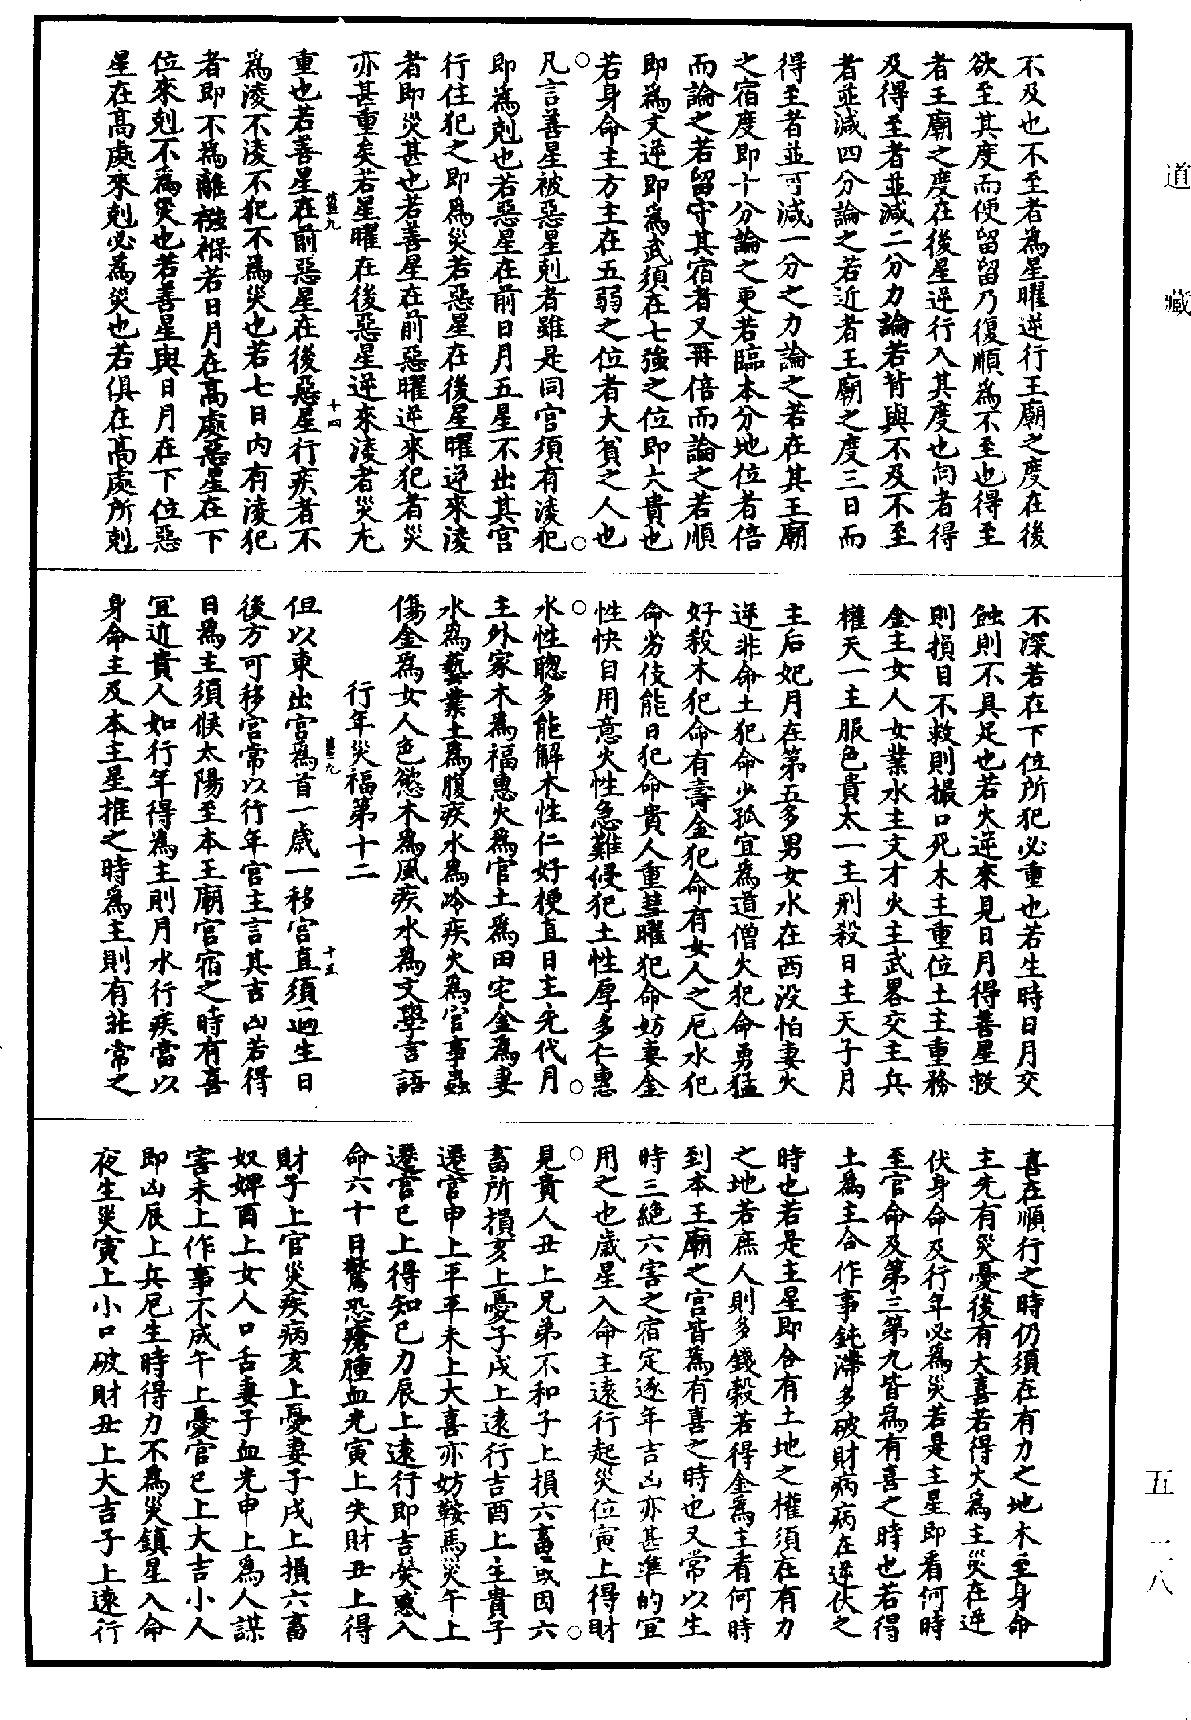 不及也不至者為星曜逆行王廟之度在後
欲至其度而便留留乃復順為不至也得至
者王廟之度在後星逆行入其度也向者得
及得至者並減二分力論若暫與不及不至
者並減四分論之若近者王廟之度三日而
得至者並可減一分之力論之若在其王廟
之宿度即十分論之更若臨本分地位者倍
而論之若留守其宿者又再倍而論之若順
即為文逆即為武須在七強之位即大貴也
若身命主方主在五弱之位者大貧之人也
○凡言善星被惡星剋者雖是同宮須有淩犯○
即為剋也若惡星在前日月五星不出其宮
行住犯之即為災若惡星在後星曜逆來淩
者即災甚也若善星在前惡曜逆來犯者災
亦甚重矣若星曜在後惡星逆來淩者災尤
薑九 十四
重也若善星在前惡星在後惡星行疾者不
為淩不淩不犯不為災也若七日內有淩犯
者即不為離襁褓若日月在高處惡星在下
位來剋不為災也若善星與日月在下位惡
星在高處來剋必為災也若俱在高處所剋
不深若在下位所犯必重也若生時日月交
蝕則不具足也若火逆來見日月得善星救
則損目不救則撮口死木主重位土主重務
金主女人女業水主文才火主武畧交主兵
權天一主服色貴太一主刑殺日主天子月
主后妃月在第五多男女水在西沒怕妻火
逆非命土犯命少孤宜為道僧火犯命勇猛
好殺木犯命有壽金犯命有女人之厄水犯
命劣伎能日犯命貴人重彗曜犯命妨妻金
性快自用意火性急難侵犯土性厚多仁惠
○水性聰多能解木性仁好梗直日主先代月○
主外家木為福惠火為官土為田宅金為妻
水為藝業土為腹疾水為冷疾火為官事蟲
傷金為女人色慾木為風疾水為文學言語
行年災福第十二
薑九 十五
但以東出宮為首一歲一移宮直須迴生日
後方可移宮常以行年宮主言其吉凶若得
日為主須候太陽至本王廟宮宿之時有喜
宜近貴人如行年得為主則月水行疾當以
身命主及本主星推之時為主則有非常之
喜在順行之時仍須在有力之地木主身命
主先有災憂後有大喜若得火為主災在逆
伏身命及行年必為災若是主星即看何時
至官命及第三第九皆為有喜之時也若得
土為主合作事鈍滯多破財病病在逆伏之
時也若是主星即合有土地之權須在有力
之地若庶人則多錢穀若得金為主看何時
到本王廟之宮皆為有喜之時也又常以生
時三絕六害之宿定逐年吉凶亦甚準的宜
用之也歲星入命主遠行起災位寅上得財
○見貴人丑上兄弟不和子上損六畜或因六○
畜所損亥上憂子戌上遠行吉酉上主貴子
遷官申上平平未上大喜亦妨鞍馬災午上
遷官巳上得知己力辰上遠行即吉熒惑入
命六十日驚恐瘡腫血光寅上失財丑上得
財子上官災疾病亥上憂妻子戌上損六畜
奴婢酉上女人口舌妻子血光申上為人謀
害未上作事不成午上憂官巳上大吉小人
即凶辰上兵厄生時得力不為災鎮星入命
夜生災寅上小口破財丑上大吉子上遠行
道藏
五 二八